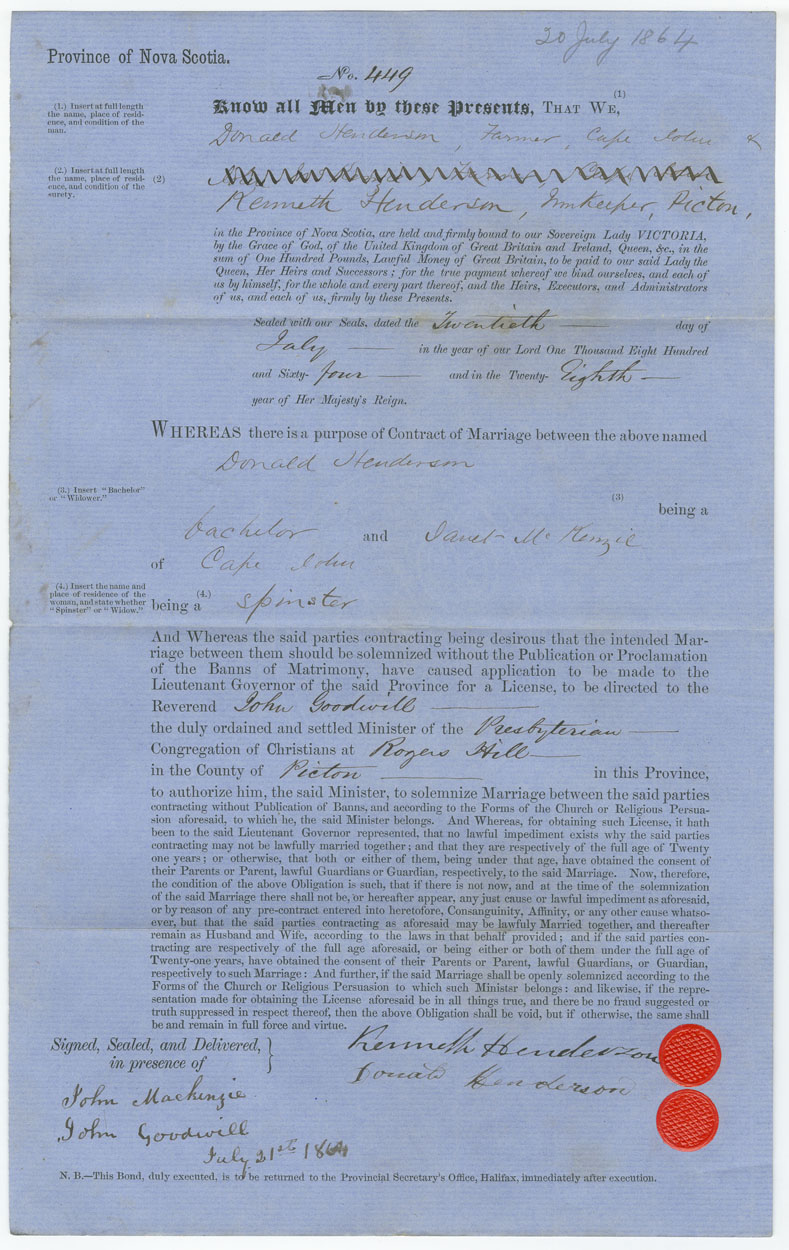 20 July 1864
Province of Nova Scotia.
No. 449
(1)
Know all Men by these Presents, THAT WE,
(1.) Insert at full length
the name, place of resid-
ence, and condition of the
man.
Donald Henderson, Farmer, Cape John &
(2.) Insert at full length
the name, place of resid-
ence, and condition of the
surety.
(2)
Kenneth Henderson, Innkeeper, Pictou,
in the Province of Nova Scotia, are held and firmly bound to our Sovereign Lady VICTORIA,
by the Grace of God, of the United Kingdom of Great Britain and Ireland, Queen, &c., in the
sum of One Hundred Pounds, Lawful Money of Great Britain, to be paid to our said Lady the
Queen, Her Heirs and Successors; for the true payment whereof we bind ourselves, and each of
us by himself, for the whole and every part thereof, and the Heirs, Executors, and Administrators
of us, and each of us, firmly by these Presents.
Sealed with our Seals, dated the Twentieth — day of
July — in the year of our Lord One Thousand Eight Hundred
and Sixty- four — and in the Twenty- Eighth —
year of Her Majesty's Reign.
WHEREAS there is a purpose of Contract of Marriage between the above named
Donald Henderson
(3.) Insert "Bachelor"
or "Widower."
(3)
being a
bachelor and Janet McKenzie
of Cape John
(4.) Insert the name and
place of residence of the
woman, and state whether
"Spinster" or "Widow."
(4.)
being a spinster
And Whereas the said parties contracting being desirous that the intended Mar-
riage between them should be solemnized without the Publication or Proclamation
of the Banns of Matrimony, have caused application to be made to the
Lieutenant Governor of the said Province for a License, to be directed to the
Reverend John Goodwill —
the duly ordained and settled Minister of the Presbyterian —
Congregation of Christians at Rogers Hill —
in the County of Pictou — in this Province,
to authorize him, the said Minister, to solemnize Marriage between the said parties
contracting without Publication of Banns, and according to the Forms of the Church or Religious Persua-
sion aforesaid, to which he, the said Minister belongs. And Whereas, for obtaining such License, it hath
been to the said Lieutenant Governor represented, that no lawful impediment exists why the said parties
contracting may not be lawfully married together; and that they are respectively of the full age of Twenty
one years; or otherwise, that both or either of them, being under that age, have obtained the consent of
their Parents or Parent, lawful Guardians or Guardian, respectively, to the said Marriage. Now, therefore,
the condition of the above Obligation is such, that if there is not now, and at the time of the solemnization
of the said Marriage there shall not be, or hereafter appear, any just cause or lawful impediment as aforesaid,
or by reason of any pre-contract entered into heretofore, Consanguinity, Affinity, or any other cause whatso-
ever, but that the said parties contracting as aforesaid may be lawfuly Married together, and thereafter
remain as Husband and Wife, according to the laws in that behalf provided; and if the said parties con-
tracting are respectively of the full age aforesaid, or being either or both of them under the full age of
Twenty-one years, have obtained the consent of their Parents or Parent, lawful Guardians, or Guardian,
respectively to such Marriage: And further, if the said Marriage shall be openly solemnized according to the
Forms of the Church or Religious Persuasion to which such Ministsr belongs: and likewise, if the repre-
sentation made for obtaining the License aforesaid be in all things true, and there be no fraud suggested or
truth suppressed in respect thereof, then the above Obligation shall be void, but if otherwise, the same shall
be and remain in full force and virtue.
Signed, Sealed, and Delivered,
in presence of
Kenneth Henderson
Donald Henderson
John Mackinzie
John Goodwill
July 21st 1864
N. B.—This Bond, duly executed, is to be returned to the Provincial Secretary's Office, Halifax, immediately after execution.